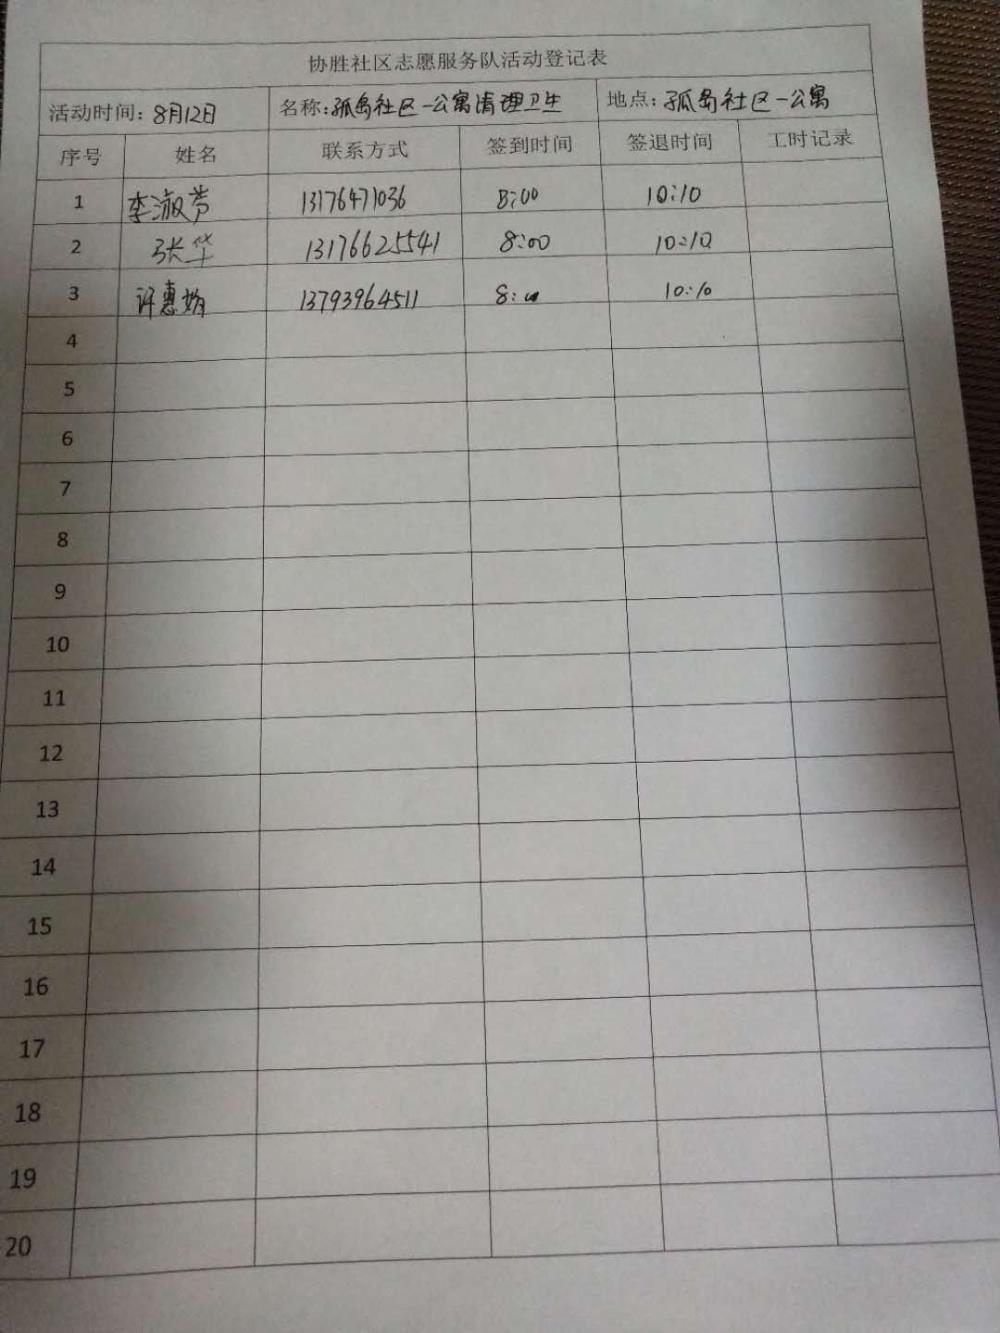 协胜社区志愿服务队活动登记表
活动时间：8月12日 名称：孤岛社区一公寓清理卫生 地点：孤岛社区一公寓
序号 姓名 联系方式 签到时间 签退时间 工时记录
1 李淑芳 13176471036 8:00 10:10
2 张华 13176625541 8:00 10:10
3 许惠娟 13793964511 8:00 10:10
4
5
6
7
8
9
10
11
12
13
14
15
16
17
18
19
20